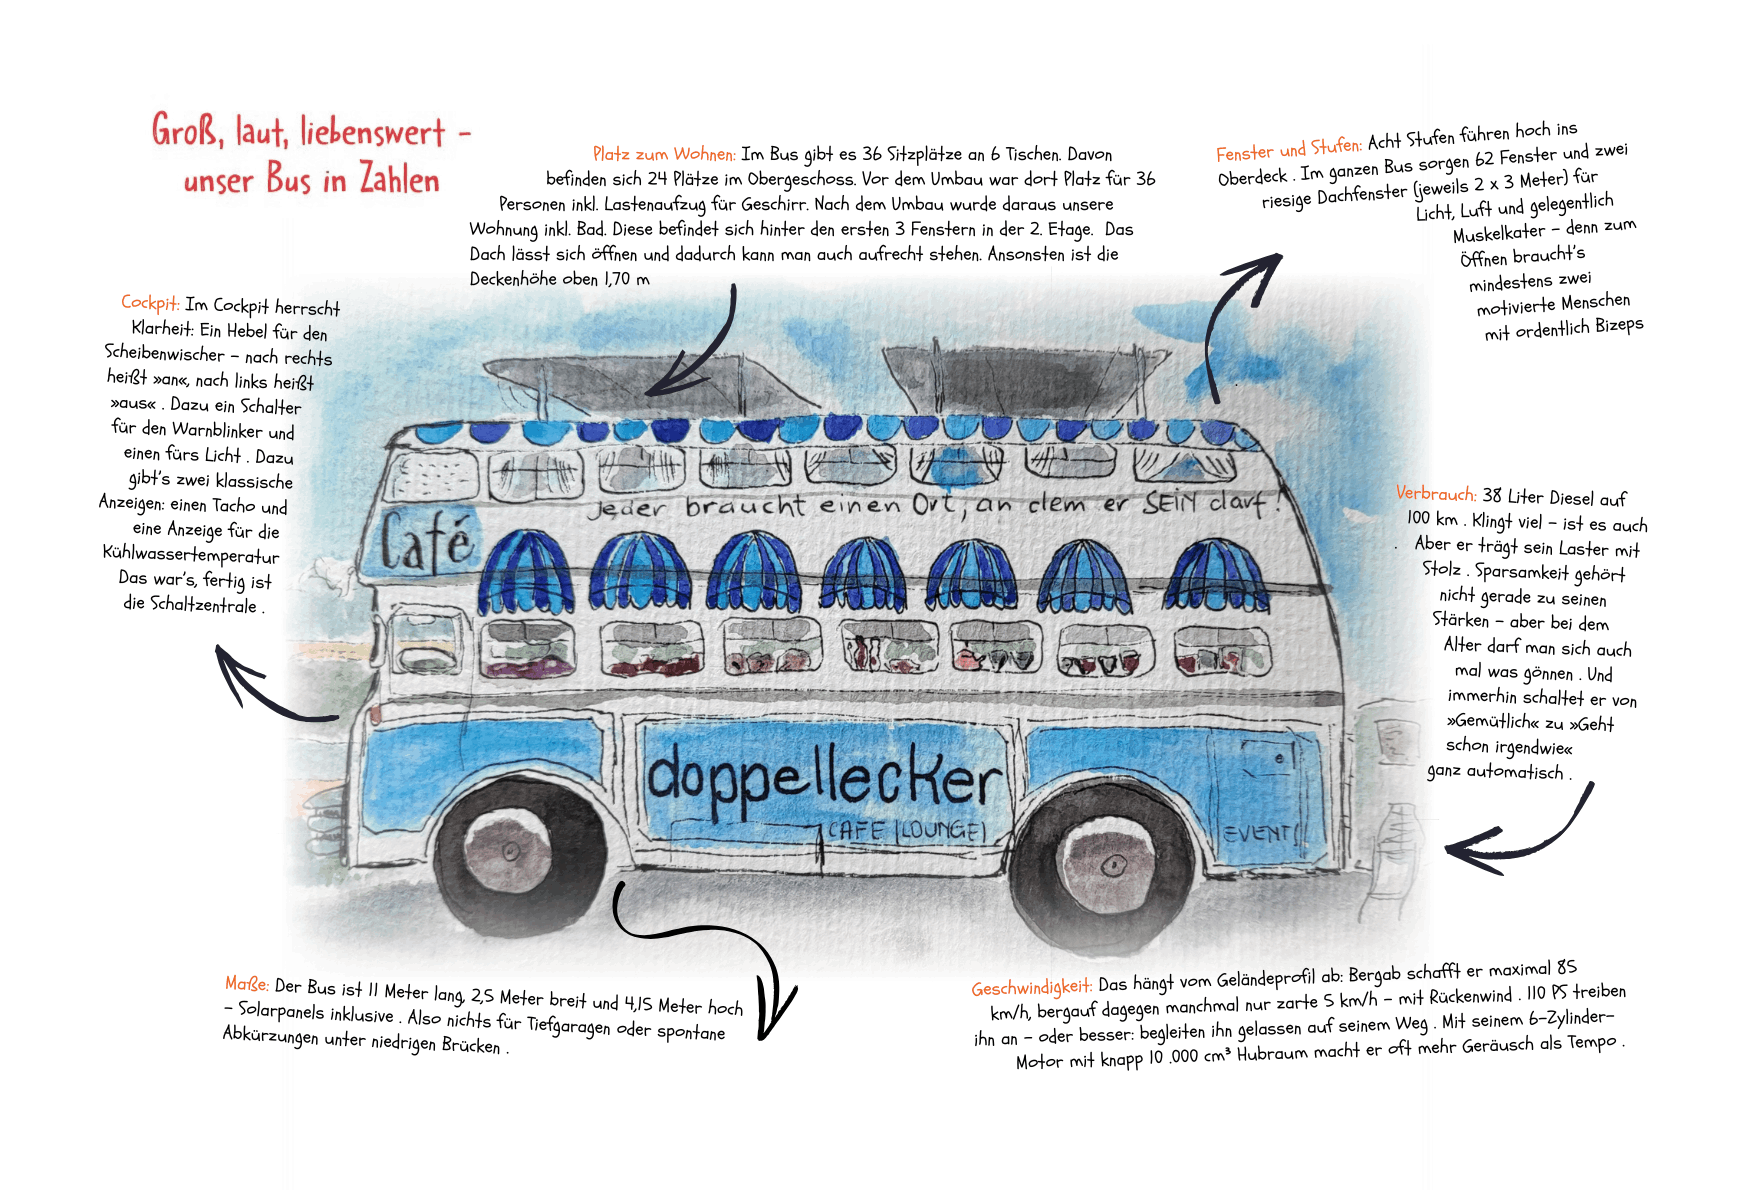 Groß, laut, liebenswert –
unser Bus in Zahlen
Platz zum Wohnen: Im Bus gibt es 36 Sitzplätze an 6 Tischen. Davon
befinden sich 24 Plätze im Obergeschoss. Vor dem Umbau war dort Platz für 36
Personen inkl. Lastenaufzug für Geschirr. Nach dem Umbau wurde daraus unsere
Wohnung inkl. Bad. Diese befindet sich hinter den ersten 3 Fenstern in der 2. Etage. Das
Dach lässt sich öffnen und dadurch kann man auch aufrecht stehen. Ansonsten ist die
Deckenhöhe oben 1,70 m
Fenster und Stufen: Acht Stufen führen hoch ins
Oberdeck . Im ganzen Bus sorgen 62 Fenster und zwei
riesige Dachfenster (jeweils 2 x 3 Meter) für
Licht, Luft und gelegentlich
Muskelkater – denn zum
Öffnen braucht's
mindestens zwei
motivierte Menschen
mit ordentlich Bizeps
Cockpit: Im Cockpit herrscht
Klarheit: Ein Hebel für den
Scheibenwischer – nach rechts
heißt »an«, nach links heißt
»aus« . Dazu ein Schalter
für den Warnblinker und
einen fürs Licht . Dazu
gibt's zwei klassische
Anzeigen: einen Tacho und
eine Anzeige für die
Kühlwassertemperatur
Das war's, fertig ist
die Schaltzentrale .
Jeder braucht einen Ort, an dem er SEIN darf!
Café
doppellecker
CAFE | LOUNGE |
EVENTS
Verbrauch: 38 Liter Diesel auf
100 km . Klingt viel – ist es auch
. Aber er trägt sein Laster mit
Stolz . Sparsamkeit gehört
nicht gerade zu seinen
Stärken – aber bei dem
Alter darf man sich auch
mal was gönnen . Und
immerhin schaltet er von
»Gemütlich« zu »Geht
schon irgendwie«
ganz automatisch .
Maße: Der Bus ist 11 Meter lang, 2,5 Meter breit und 4,15 Meter hoch
– Solarpanels inklusive . Also nichts für Tiefgaragen oder spontane
Abkürzungen unter niedrigen Brücken .
Geschwindigkeit: Das hängt vom Geländeprofil ab: Bergab schafft er maximal 85
km/h, bergauf dagegen manchmal nur zarte 5 km/h – mit Rückenwind . 110 PS treiben
ihn an – oder besser: begleiten ihn gelassen auf seinem Weg . Mit seinem 6-Zylinder-
Motor mit knapp 10 .000 cm³ Hubraum macht er oft mehr Geräusch als Tempo .